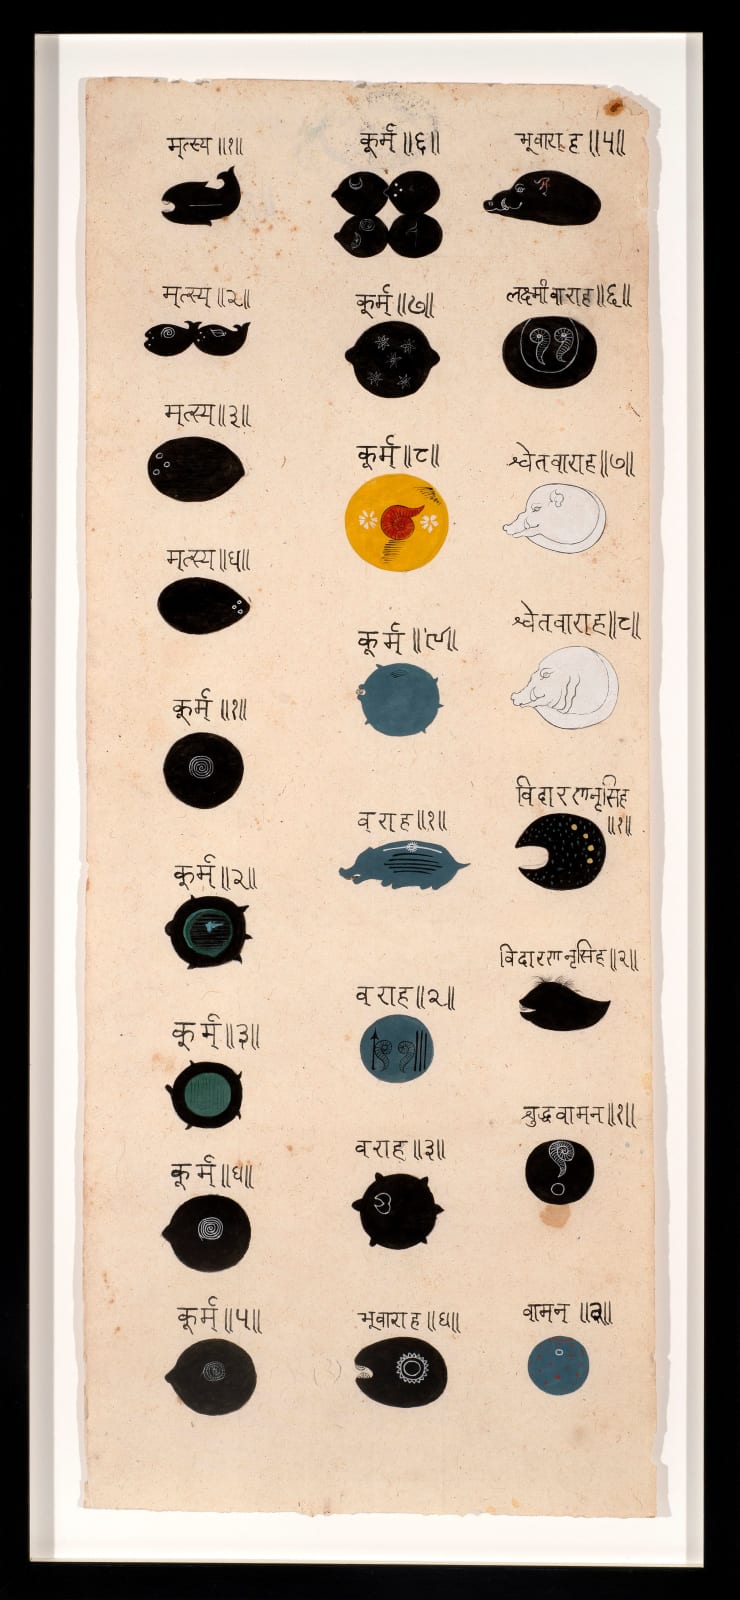 मत्स्य ॥१॥
मत्स्य ॥२॥
मत्स्य ॥३॥
मत्स्य ॥४॥
कूर्म् ॥१॥
कूर्म् ॥२॥
कूर्म् ॥३॥
कूर्म् ॥४॥
कूर्म् ॥५॥
कूर्म् ॥६॥
कूर्म् ॥७॥
कूर्म् ॥८॥
कूर्म् ॥९॥
वराह ॥१॥
वराह ॥२॥
वराह ॥३॥
भूवाराह ॥४॥
भूवाराह ॥५॥
लक्ष्मीवाराह ॥६॥
श्वेतवाराह ॥७॥
श्वेतवाराह ॥८॥
विदारणनृसिंह
॥१॥
विदारणनृसिंह ॥२॥
श्रुद्धवामन ॥१॥
वामन् ॥२॥